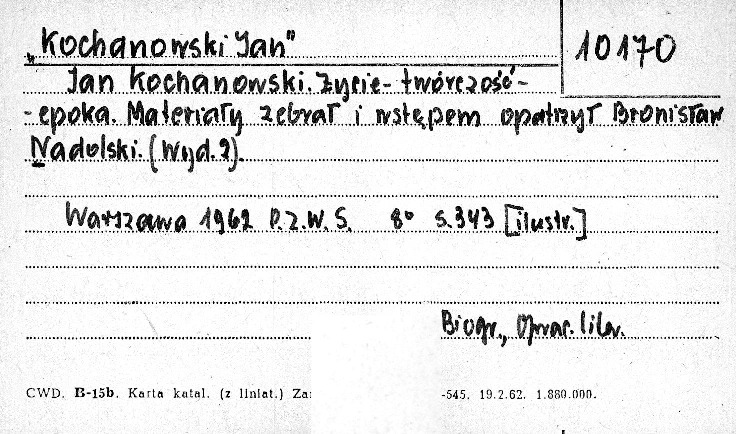 „Kochanowski Jan"
10170
Jan Kochanowski. Życie - twórczość -
- epoka. Materiały zebrał i wstępem opatrzył Bronisław
Nadolski. (Wyd. 2).
Warszawa 1962 P.Z.W.S. 8° s. 343 [ilustr.]
Biogr., Oprac. liter.
CWD. B-15b. Karta katal. (z liniat.) Za
-545. 19.2.62. 1.880.000.